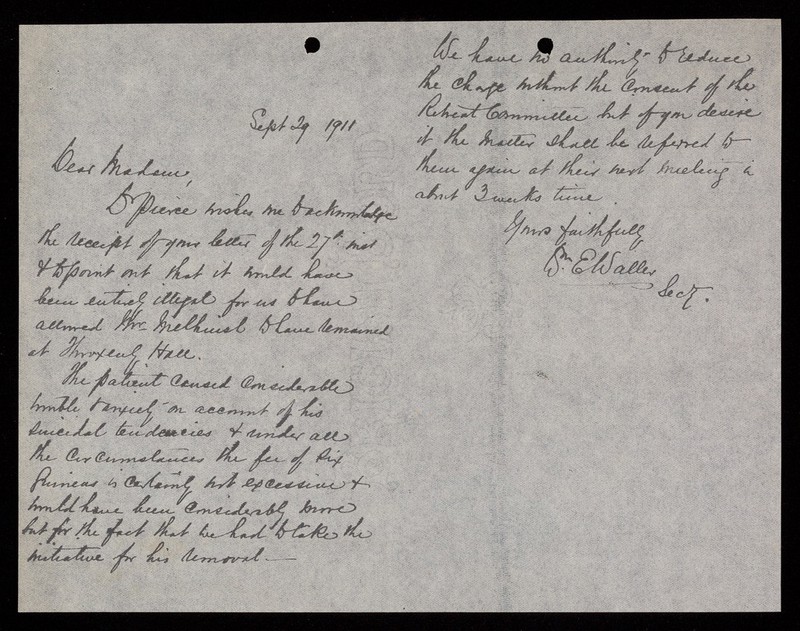 Sept 29 1911
Dear Madam,
Dr Pierce wishes me to acknowledge
the receipt of your letter of the 27th inst
& to point out that it would have
been entirely illegal for us to have
allowed Mr. Melhuish to have remained
at Throxenby Hall.
The patient caused considerable
trouble & anxiety on account of his
suicidal tendencies & under all
the circumstances the fee of six
Guineas is certainly not excessive &
would have been considerably more
but for the fact that we had to take the
initiative for his removal —
We have no authority to reduce
the charge without the consent of the
Retreat Committee but if you desire
it the matter shall be referred to
them again at their next meeting in
about 3 weeks time.
Yours faithfully,
Wm E Waller
Secy.